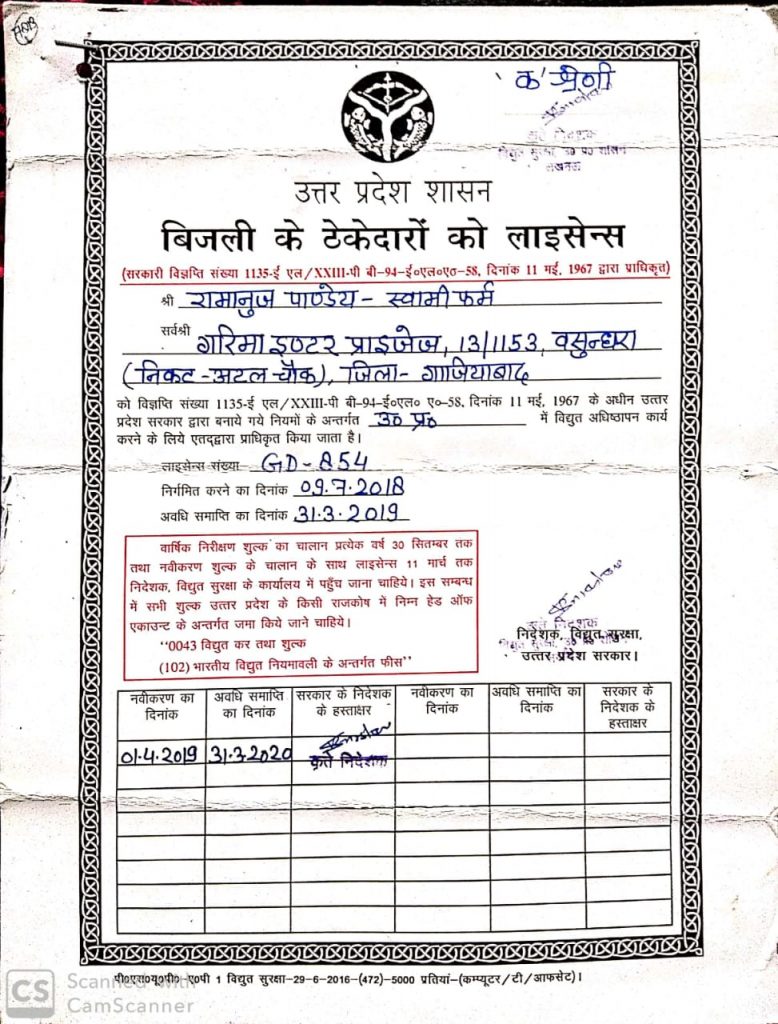 'क' श्रेणी
कृते निदेशक
विद्युत सुरक्षा, उ० प्र० शासन
लखनऊ
उत्तर प्रदेश शासन
बिजली के ठेकेदारों को लाइसेन्स
(सरकारी विज्ञप्ति संख्या 1135-ई एल/XXIII-पी बी-94-ई०एल०ए०-58, दिनांक 11 मई, 1967 द्वारा प्राधिकृत)
श्री रामानुज पाण्डेय - स्वामी फर्म
सर्वश्री गरिमा इण्टर प्राइजेज, 13/1153, वसुन्धरा
(निकट-अटल चौक), जिला- गाजियाबाद
को विज्ञप्ति संख्या 1135-ई एल/XXIII-पी बी-94-ई०एल० ए०-58, दिनांक 11 मई, 1967 के अधीन उत्तर
प्रदेश सरकार द्वारा बनाये गये नियमों के अन्तर्गत उ० प्र० में विद्युत अधिष्ठापन कार्य
करने के लिये एतद्द्वारा प्राधिकृत किया जाता है।
लाइसेन्स संख्या GD-854
निर्गमित करने का दिनांक 09.7.2018
अवधि समाप्ति का दिनांक 31.3.2019
वार्षिक निरीक्षण शुल्क का चालान प्रत्येक वर्ष 30 सितम्बर तक
तथा नवीकरण शुल्क के चालान के साथ लाइसेन्स 11 मार्च तक
निदेशक, विद्युत सुरक्षा के कार्यालय में पहुँच जाना चाहिये। इस सम्बन्ध
में सभी शुल्क उत्तर प्रदेश के किसी राजकोष में निम्न हेड ऑफ
एकाउन्ट के अन्तर्गत जमा किये जाने चाहिये।
"0043 विद्युत कर तथा शुल्क
(102) भारतीय विद्युत नियमावली के अन्तर्गत फीस"
कृते निदेशक
निदेशक, विद्युत सुरक्षा,
उत्तर प्रदेश सरकार।
नवीकरण का दिनांक अवधि समाप्ति का दिनांक सरकार के निदेशक के हस्ताक्षर नवीकरण का दिनांक अवधि समाप्ति का दिनांक सरकार के निदेशक के हस्ताक्षर
01.4.2019 31.3.2020 कृते निदेशक
पी०एस०यू०पी० ए०पी 1 विद्युत सुरक्षा-29-6-2016-(472)-5000 प्रतियां-(कम्प्यूटर/टी/आफसेट)।
CS Scanned with
CamScanner